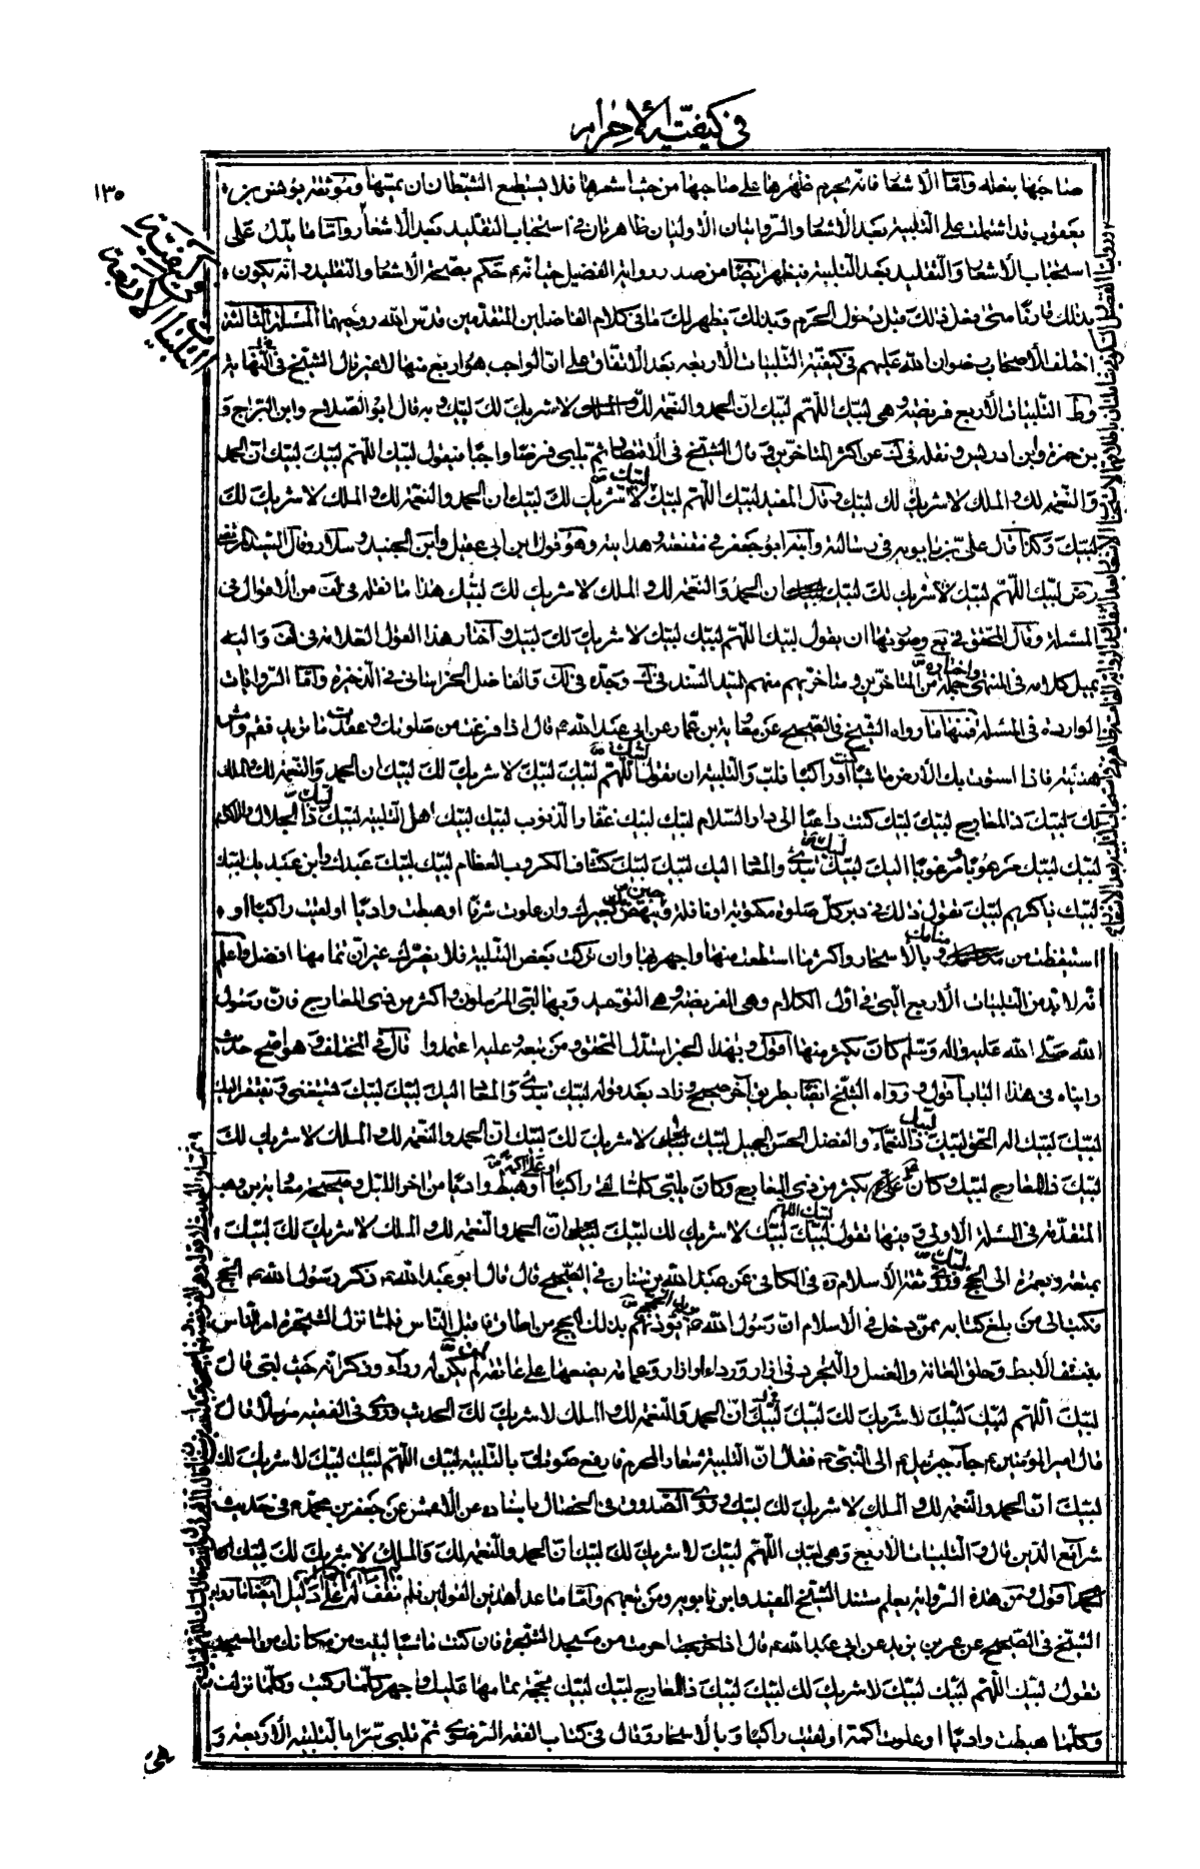 في كيفية الاحرام
١٣٥
في كيفية التلبيات الاربعة
صاحبها بنعله واما الاشعار فانه يحرم ظهرها على صاحبها من حيث اشعرها فلا يستطيع الشيطان ان يمسها وموثقة يونس بن
يعقوب قد اشتملت على التلبية بعد الاشعار والروايتان الاوليان ظاهرتان في استحباب التقليد بعد الاشعار واما ما يدل على
استحباب الاشعار والتقليد بعد التلبية فيظهر ايضا من صدر رواية الفضيل حيث انه حكم بصحة الاشعار والتقليد وانه يكون
بذلك قارنا متى فعل ذلك قبل دخول الحرم وبذلك يظهر لك ما في كلام الفاضلين المتقدمين قدس الله روحهما المسئلة الثالثة
اختلف الاصحاب رضوان الله عليهم في كيفية التلبيات الاربعة بعد الاتفاق على ان الواجب هو اربع منها لا غير قال الشيخ في النهاية
وط التلبيات الاربع فريضة وهي لبيك اللهم لبيك لبيك ان الحمد والنعمة لك والملك لا شريك لك لبيك وبه قال ابو الصلاح وابن البراج و
بن حمزة وابن ادريس ونقله في لف عن اكثر المتاخرين قال الشيخ في الاقتصاد ثم يلبي فرضا واجبا فيقول لبيك اللهم لبيك لبيك ان الحمد
والنعمة لك والملك لا شريك لك لبيك وقال المفيد لبيك اللهم لبيك لبيك لا شريك لك لبيك ان الحمد والنعمة لك والملك لا شريك لك
لبيك وكذا قال علي بن بابويه في رسالته وابنه ابو جعفر في مقنعه وهدايته وهو قول ابن ابي عقيل وابن الجنيد وسلار وقال السيد المرتضى
رض لبيك اللهم لبيك لا شريك لك لبيك ان الحمد والنعمة لك والملك لا شريك لك لبيك هذا ما نقله في لف من الاقوال في
المسئلة وقال المحقق في يع وصورتها ان يقول لبيك اللهم لبيك لبيك لا شريك لك لبيك واختار هذا القول العلامة في لف واليه
يميل كلامه في المنتهى واختاره جملة من المتاخرين ومتاخريهم منهم السيد السند في ك وجده في لك والفاضل الخراساني في الذخيرة واما الروايات
الواردة في المسئلة فمنها ما رواه الشيخ في الصحيح عن معاوية بن عمار عن ابي عبد الله ع قال اذا فرغت من صلوتك وعقدت ما تريد فقم وامش
هنيئة فاذا استوت بك الارض ماشيا كنت او راكبا فلب والتلبية ان تقول لبيك اللهم لبيك لبيك لا شريك لك لبيك ان الحمد والنعمة لك والملك
لك لبيك ذا المعارج لبيك لبيك داعيا الى دار السلام لبيك لبيك غفار الذنوب لبيك لبيك اهل التلبية لبيك لبيك ذا الجلال والاكرام
لبيك لبيك مرهوبا ومرغوبا اليك لبيك لبيك تبدئ والمعاد اليك لبيك لبيك كشاف الكروب العظام لبيك لبيك عبدك وابن عبديك لبيك
لبيك يا كريم لبيك تقول ذلك في دبر كل صلوة مكتوبة او نافلة وحين ينهض بك بعيرك وان علوت شرفا او هبطت واديا او لقيت راكبا او
استيقظت من منامك وبالاسحار واكثر ما استطعت منها واجهر بها وان تركت بعض التلبية فلا يضرك غير ان تمامها افضل واعلم
انه لا بد من التلبيات الاربع التي في اول الكلام وهي الفريضة وهي التوحيد وبها لبى المرسلون واكثر من ذي المعارج فان رسول
الله صلى الله عليه واله وسلم كان يكثر منها اقول وبهذا الخبر استدل المحقق ومن تبعه وعليه اعتمدوا قال في المختلف وهو اصح حديث
رايناه في هذا الباب اقول ورواه الشيخ ايضا بطريق اخر صحيح وزاد بعد قوله لبيك تبدئ والمعاد اليك لبيك لبيك تستغني ونفتقر اليك
لبيك لبيك اله الحق لبيك لبيك ذا النعماء والفضل الحسن الجميل لبيك لا شريك لك لبيك ان الحمد والنعمة لك والملك لا شريك لك
لبيك ذا المعارج لبيك وكان يكثر من ذي المعارج وكان يلبي كلما لقي راكبا او علا اكمة او هبط واديا من اخر الليل وصحيحة معاوية بن وهب
المتقدمة في المسئلة الاولى وفيها تقول لبيك اللهم لبيك لبيك لا شريك لك لبيك ان الحمد والنعمة لك والملك لا شريك لك لبيك
بمتعة وبعمرة الى الحج وروى ثقة الاسلام في الكافي عن عبد الله بن سنان في الصحيح قال قال ابو عبد الله ع ذكر رسول الله ص الحج
فكتب الى من بلغ كتابه ممن دخل في الاسلام ان رسول الله ص يريد الحج يؤذنهم بذلك ليحج من اطاق فاقبل الناس فلما نزل الشجرة امر الناس
بنتف الابط وحلق العانة والغسل والتجرد في ازار ورداء او ازار وعمامة يضعها على عاتقه لمن لم يكن له رداء وذكر انه حيث لبى قال
لبيك اللهم لبيك لبيك لا شريك لك لبيك ان الحمد والنعمة لك والملك لا شريك لك الحديث وروى في الفقيه مرسلا قال
قال امير المؤمنين ع جاء جبرئيل ع الى النبي ص فقال ان التلبية شعار المحرم فارفع صوتك بالتلبية لبيك اللهم لبيك لبيك لا شريك لك
لبيك ان الحمد والنعمة لك والملك لا شريك لك لبيك وروى الصدوق في الخصال باسناده عن الاعمش عن جعفر بن محمد ع في حديث
شرائع الدين قال والتلبيات الاربع وهي لبيك اللهم لبيك لا شريك لك لبيك ان الحمد والنعمة لك والملك لا شريك لك لبيك
اقول ومن هذه الرواية يعلم مستند الشيخ المفيد وابن بابويه ومن تبعهم واما ما عدا هذين القولين فلم نقف له على دليل
الشيخ في الصحيح عن عمر بن يزيد عن ابي عبد الله ع قال اذا احرمت من مسجد الشجرة فان كنت ماشيا لبيت من مكانك من المسجد
تقول لبيك اللهم لبيك لبيك لا شريك لك لبيك لبيك ذا المعارج لبيك لبيك بحجة تمامها عليك واجهر بها كلما ركبت وكلما نزلت
وكلما هبطت واديا او علوت اكمة او لقيت راكبا وبالاسحار وقال في كتاب الفقه الرضوي ثم تلبي سرا بالتلبية الاربعة و
هي